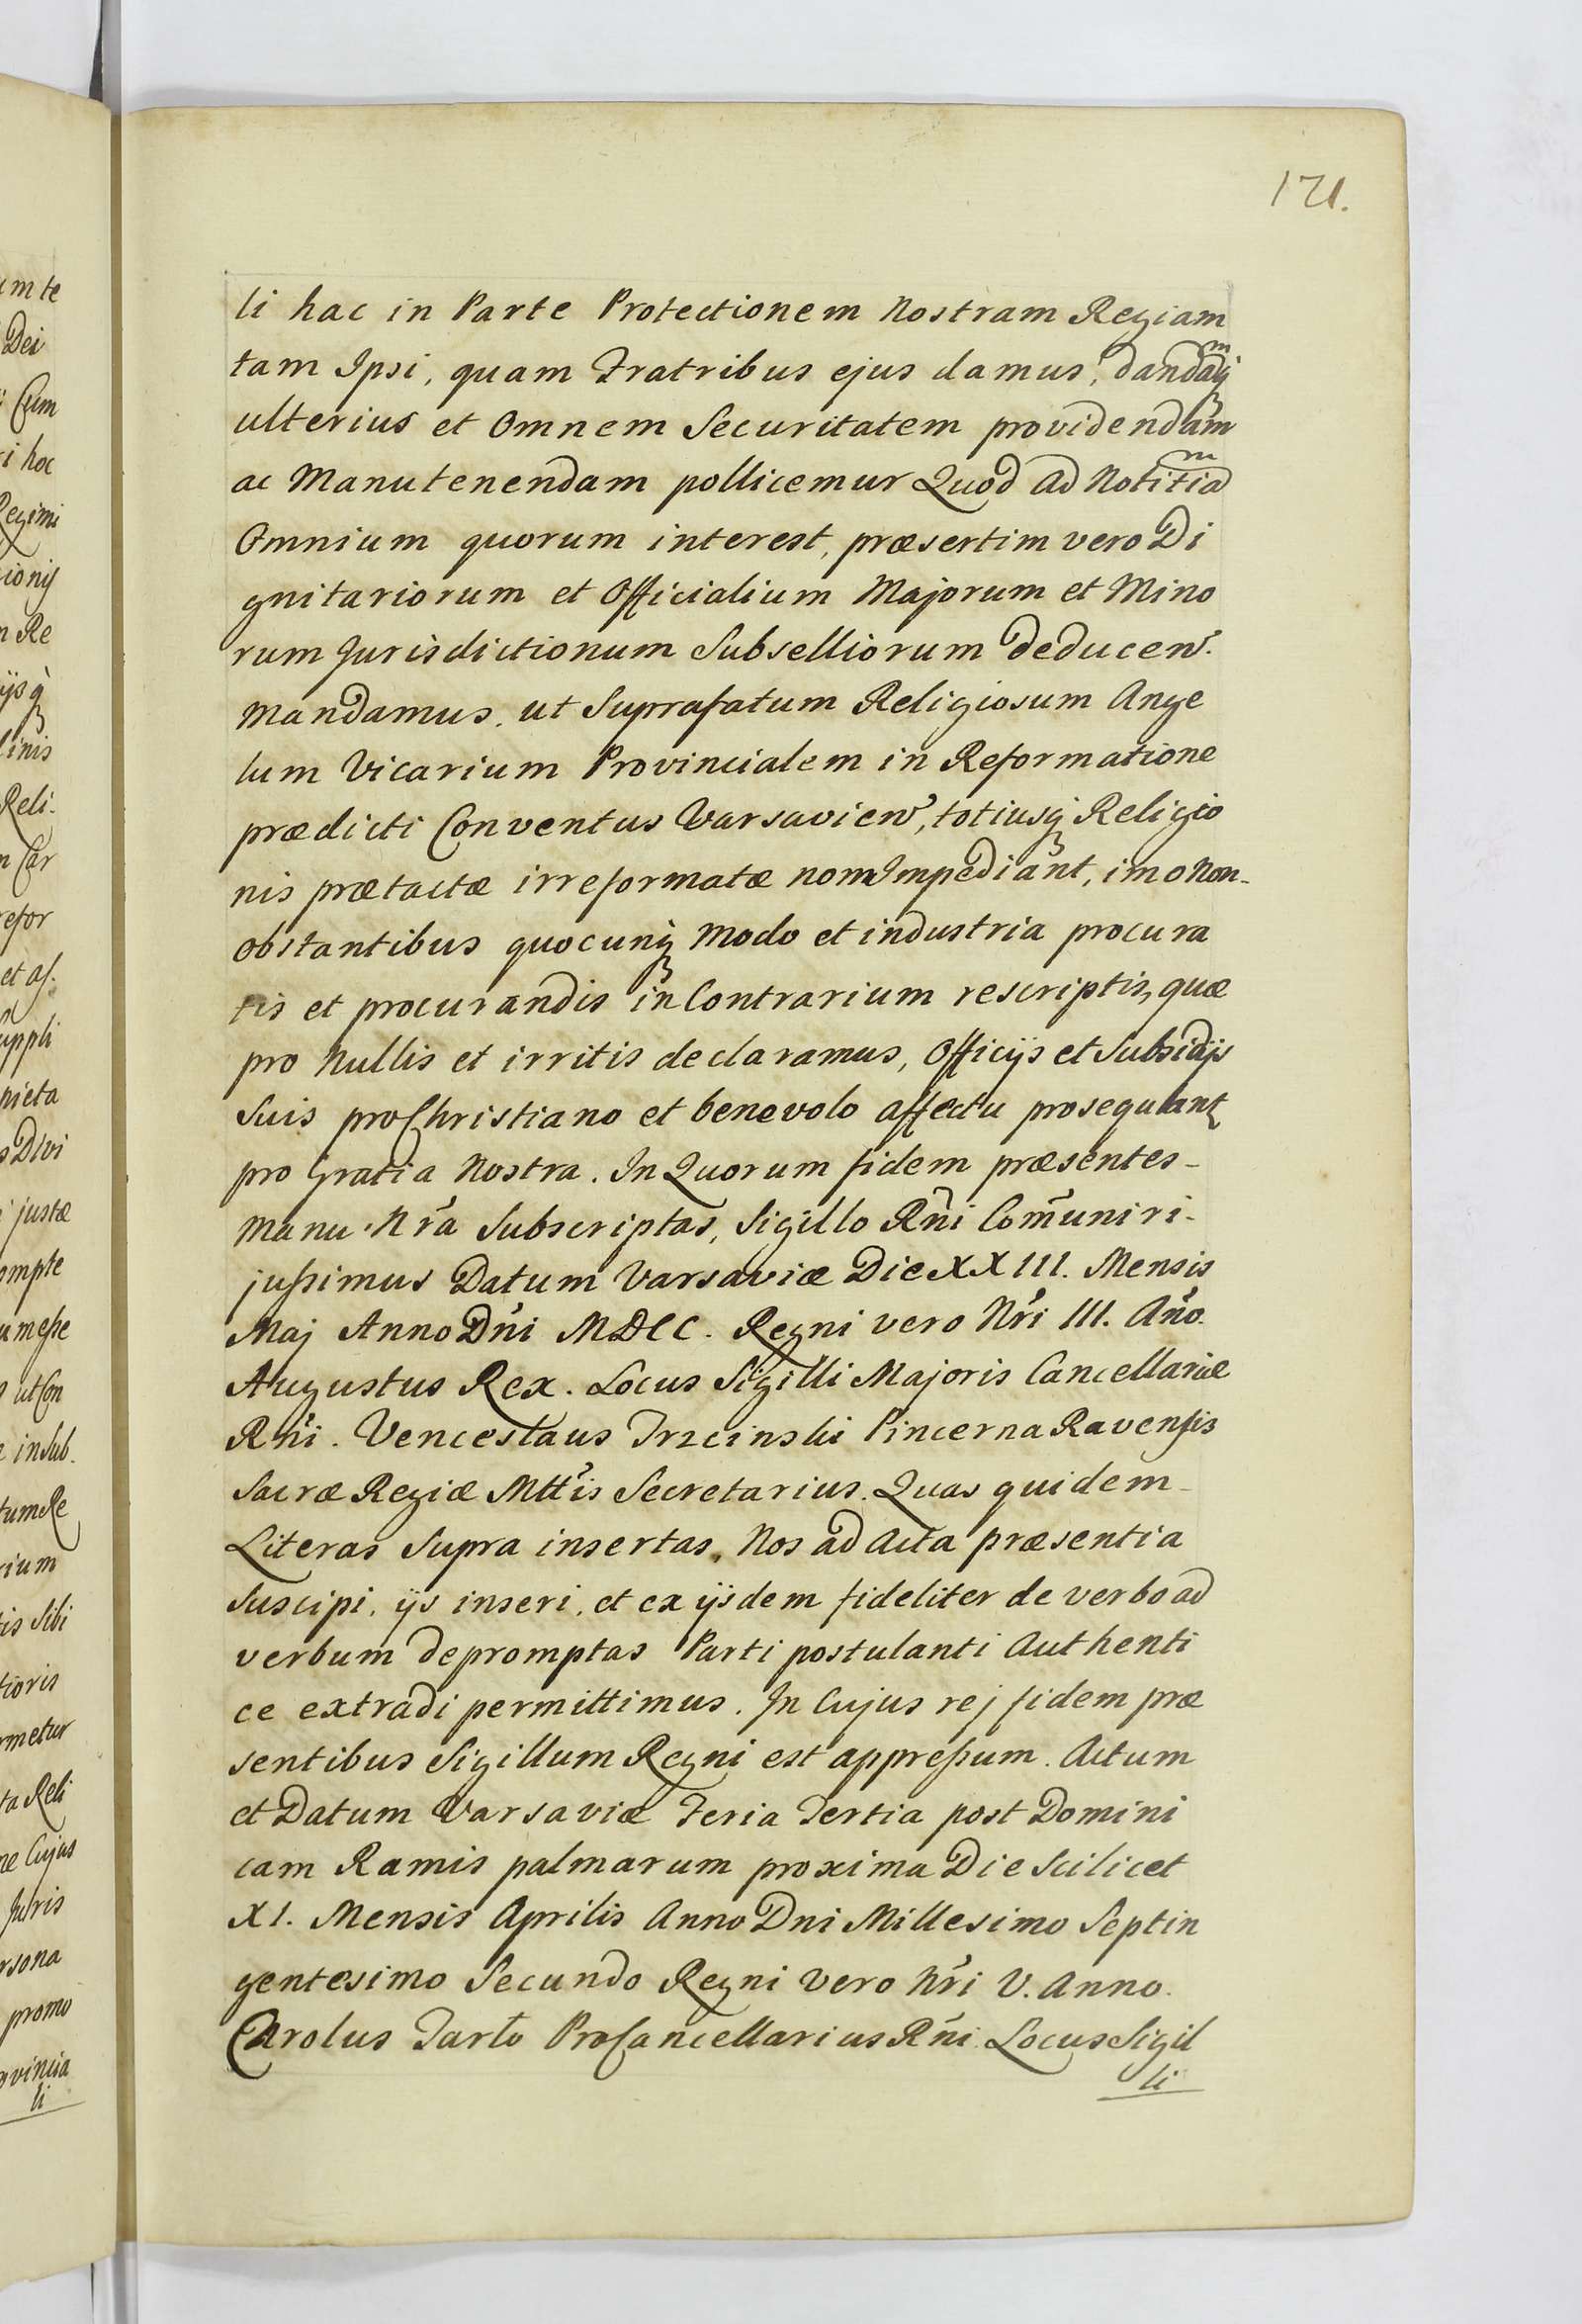 121.
li hac in Parte Protectionem Nostram Regiam
tam Ipsi, quam Fratribus ejus damus, dandamq
ulterius et Omnem Securitatem providendam
ac Manutenendam pollicemur Quod ad Notitiam
Omnium quorum interest, præsertim vero Di
gnitariorum et Officialium Majorum et Mino
rum Jurisdictionum Subselliorum deducen̄.
Mandamus, ut Suprafatum Religiosum Ange
lum Vicarium Provincialem in Reformatione
prædicti Conventus Varsavien̄, totiusq Religio
nis prætactæ irreformatæ non Impediant, imo Non-
obstantibus quocunq Modo et industria procura
tis et procurandis in Contrarium rescriptis, quæ
pro Nullis et irritis declaramus, Officijs et Subsidijs
Suis pro Christiano et benevolo affectu prosequant
pro Gratia Nostra. In Quorum fidem præsentes-
Manu Nrã Subscriptas, Sigillo Rñi Com̃uniri-
jußimus Datum Varsaviæ Die XXIII. Mensis
Maj Anno Dñi MDCC. Regni vero Nr̃i III. Año.
Augustus Rex. Locus Sigilli Majoris Cancellariæ
Rñi. Venceslaus Trzcinski Pincerna Ravensis
Sacræ Regiæ Mttĩs Secretarius. Quas quidem-
Literas Supra insertas, Nos ad Acta præsentia
Suscipi, ijs inseri, et ex ijsdem fideliter de verbo ad
verbum depromptas Parti postulanti Authenti
ce extradi permittimus. In Cujus rej fidem præ
sentibus Sigillum Regni est appreßum. Actum
et Datum Varsaviæ Feria Tertia post Domini
cam Ramis palmarum proxima Die Scilicet
XI. Mensis Aprilis Anno Dni Millesimo Septin
gentesimo Secundo Regni Vero Nr̃i V. Anno.
Carolus Tarło ProCancellarius Rñi. Locus Sigil
li